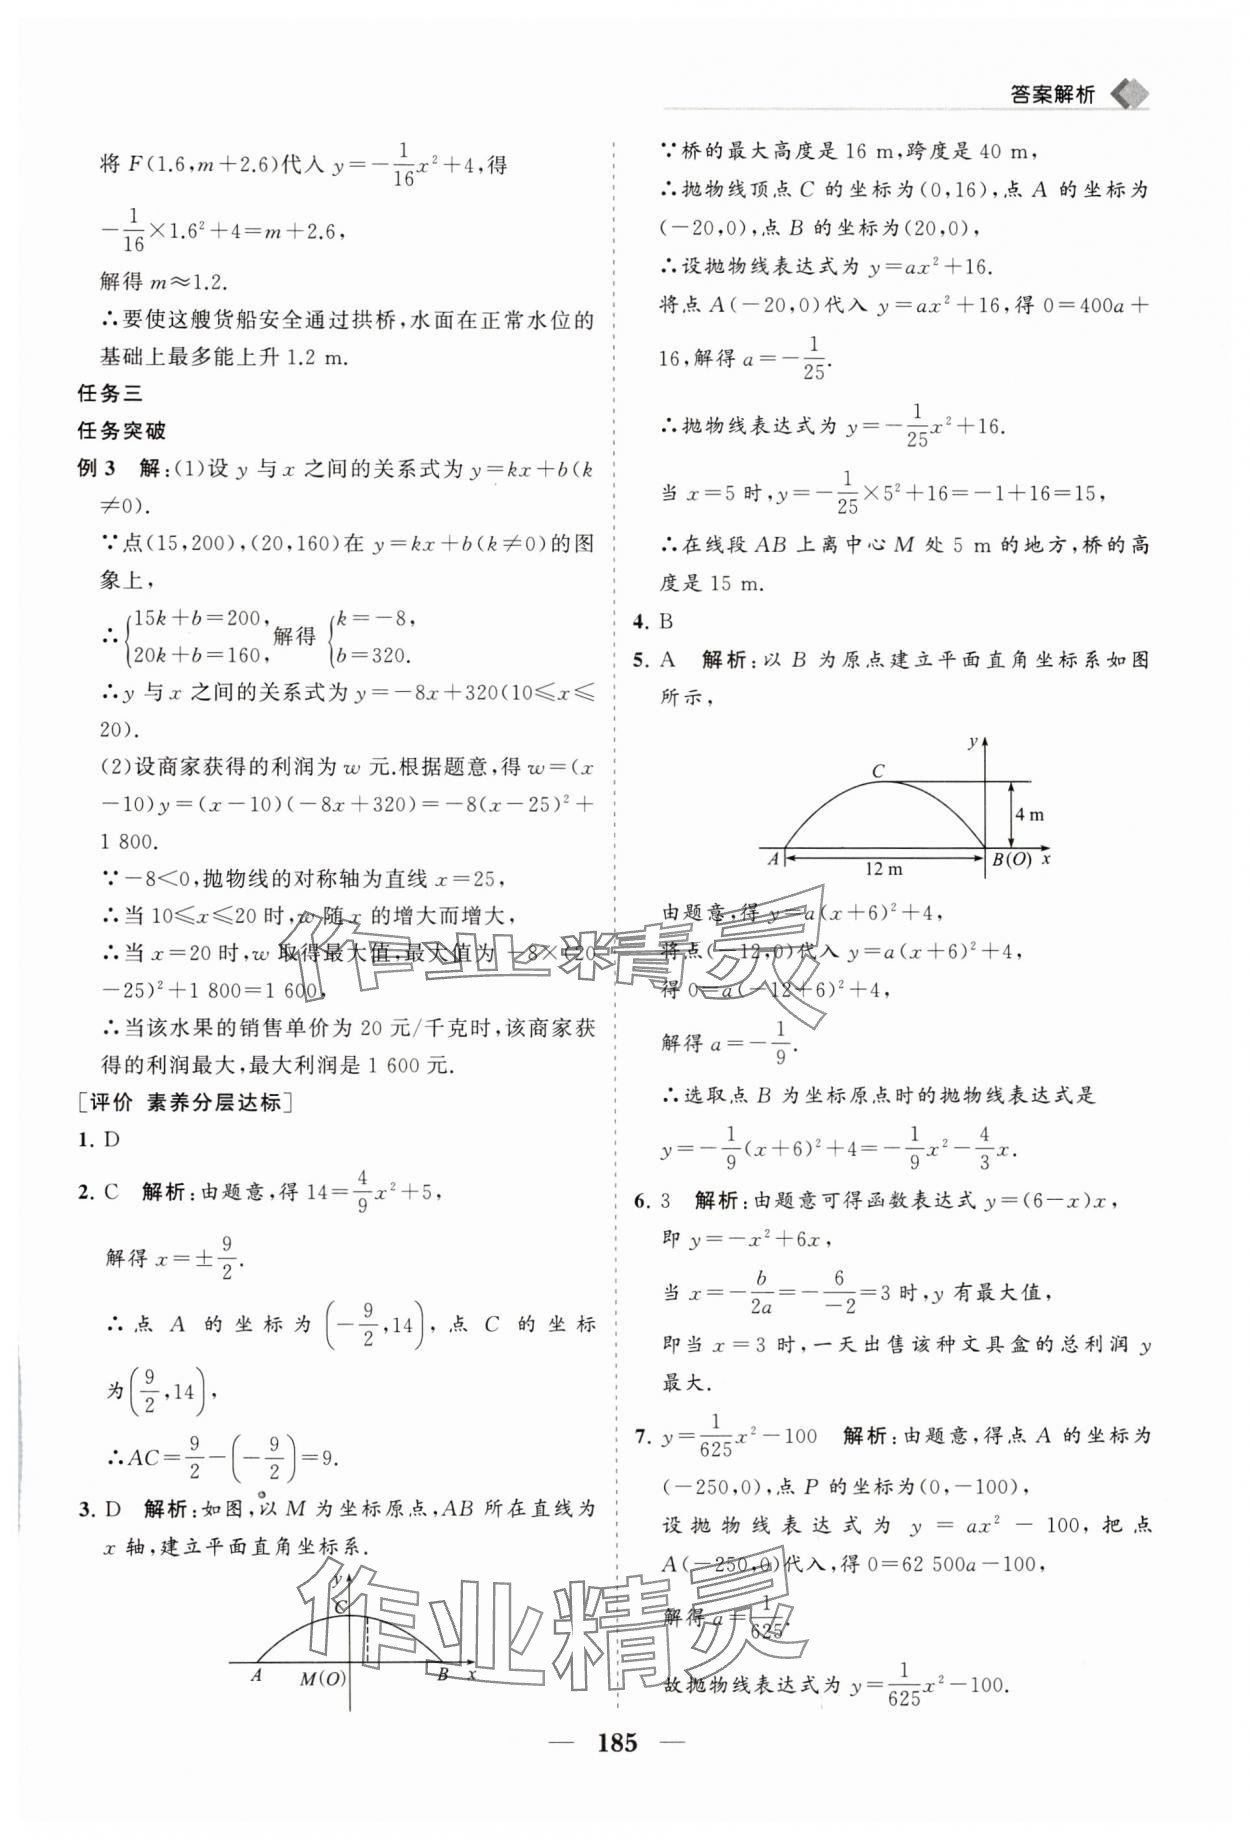 答案解析
将 F(1.6,m+2.6)代入 y=-\frac{1}{16}x²+4,得
-\frac{1}{16}×1.6²+4=m+2.6,
解得 m≈1.2.
∴要使这艘货船安全通过拱桥,水面在正常水位的
基础上最多能上升 1.2 m.
任务三
任务突破
例 3 解:(1)设 y 与 x 之间的关系式为 y=kx+b(k
≠0).
∵点(15,200),(20,160)在 y=kx+b(k≠0)的图
象上,
∴{15k+b=200, 20k+b=160, 解得 {k=-8, b=320.
∴y 与 x 之间的关系式为 y=-8x+320(10≤x≤
20).
(2)设商家获得的利润为 w 元.根据题意,得 w=(x
-10)y=(x-10)(-8x+320)=-8(x-25)²+
1 800.
∵-8<0,抛物线的对称轴为直线 x=25,
∴当 10≤x≤20 时,w 随 x 的增大而增大,
∴当 x=20 时,w 取得最大值,最大值为 -8×(20
-25)²+1 800=1 600,
∴当该水果的销售单价为 20 元/千克时,该商家获
得的利润最大,最大利润是 1 600 元.
[评价 素养分层达标]
1. D
2. C 解析:由题意,得 14=\frac{4}{9}x²+5,
解得 x=±\frac{9}{2}.
∴点 A 的坐标为(-\frac{9}{2},14),点 C 的坐标
为(\frac{9}{2},14),
∴AC=\frac{9}{2}-(-\frac{9}{2})=9.
3. D 解析:如图,以 M 为坐标原点,AB 所在直线为
x 轴,建立平面直角坐标系.
y
C
A M(O) B x
∵桥的最大高度是 16 m,跨度是 40 m,
∴抛物线顶点 C 的坐标为(0,16),点 A 的坐标为
(-20,0),点 B 的坐标为(20,0),
∴设抛物线表达式为 y=ax²+16.
将点 A(-20,0)代入 y=ax²+16,得 0=400a+
16,解得 a=-\frac{1}{25}.
∴抛物线表达式为 y=-\frac{1}{25}x²+16.
当 x=5 时,y=-\frac{1}{25}×5²+16=-1+16=15,
∴在线段 AB 上离中心 M 处 5 m 的地方,桥的高
度是 15 m.
4. B
5. A 解析:以 B 为原点建立平面直角坐标系如图
所示,
y
C
4 m
A 12 m B(O) x
由题意,得 y=a(x+6)²+4,
将点(-12,0)代入 y=a(x+6)²+4,
得 0=a(-12+6)²+4,
解得 a=-\frac{1}{9}.
∴选取点 B 为坐标原点时的抛物线表达式是
y=-\frac{1}{9}(x+6)²+4=-\frac{1}{9}x²-\frac{4}{3}x.
6. 3 解析:由题意可得函数表达式 y=(6-x)x,
即 y=-x²+6x,
当 x=-\frac{b}{2a}=-\frac{6}{-2}=3 时,y 有最大值,
即当 x=3 时,一天出售该种文具盒的总利润 y
最大.
7. y=\frac{1}{625}x²-100 解析:由题意,得点 A 的坐标为
(-250,0),点 P 的坐标为(0,-100),
设抛物线表达式为 y=ax²-100,把点
A(-250,0)代入,得 0=62 500a-100,
解得 a=\frac{1}{625}.
故抛物线表达式为 y=\frac{1}{625}x²-100.
作业精灵
作业精灵
— 185 —